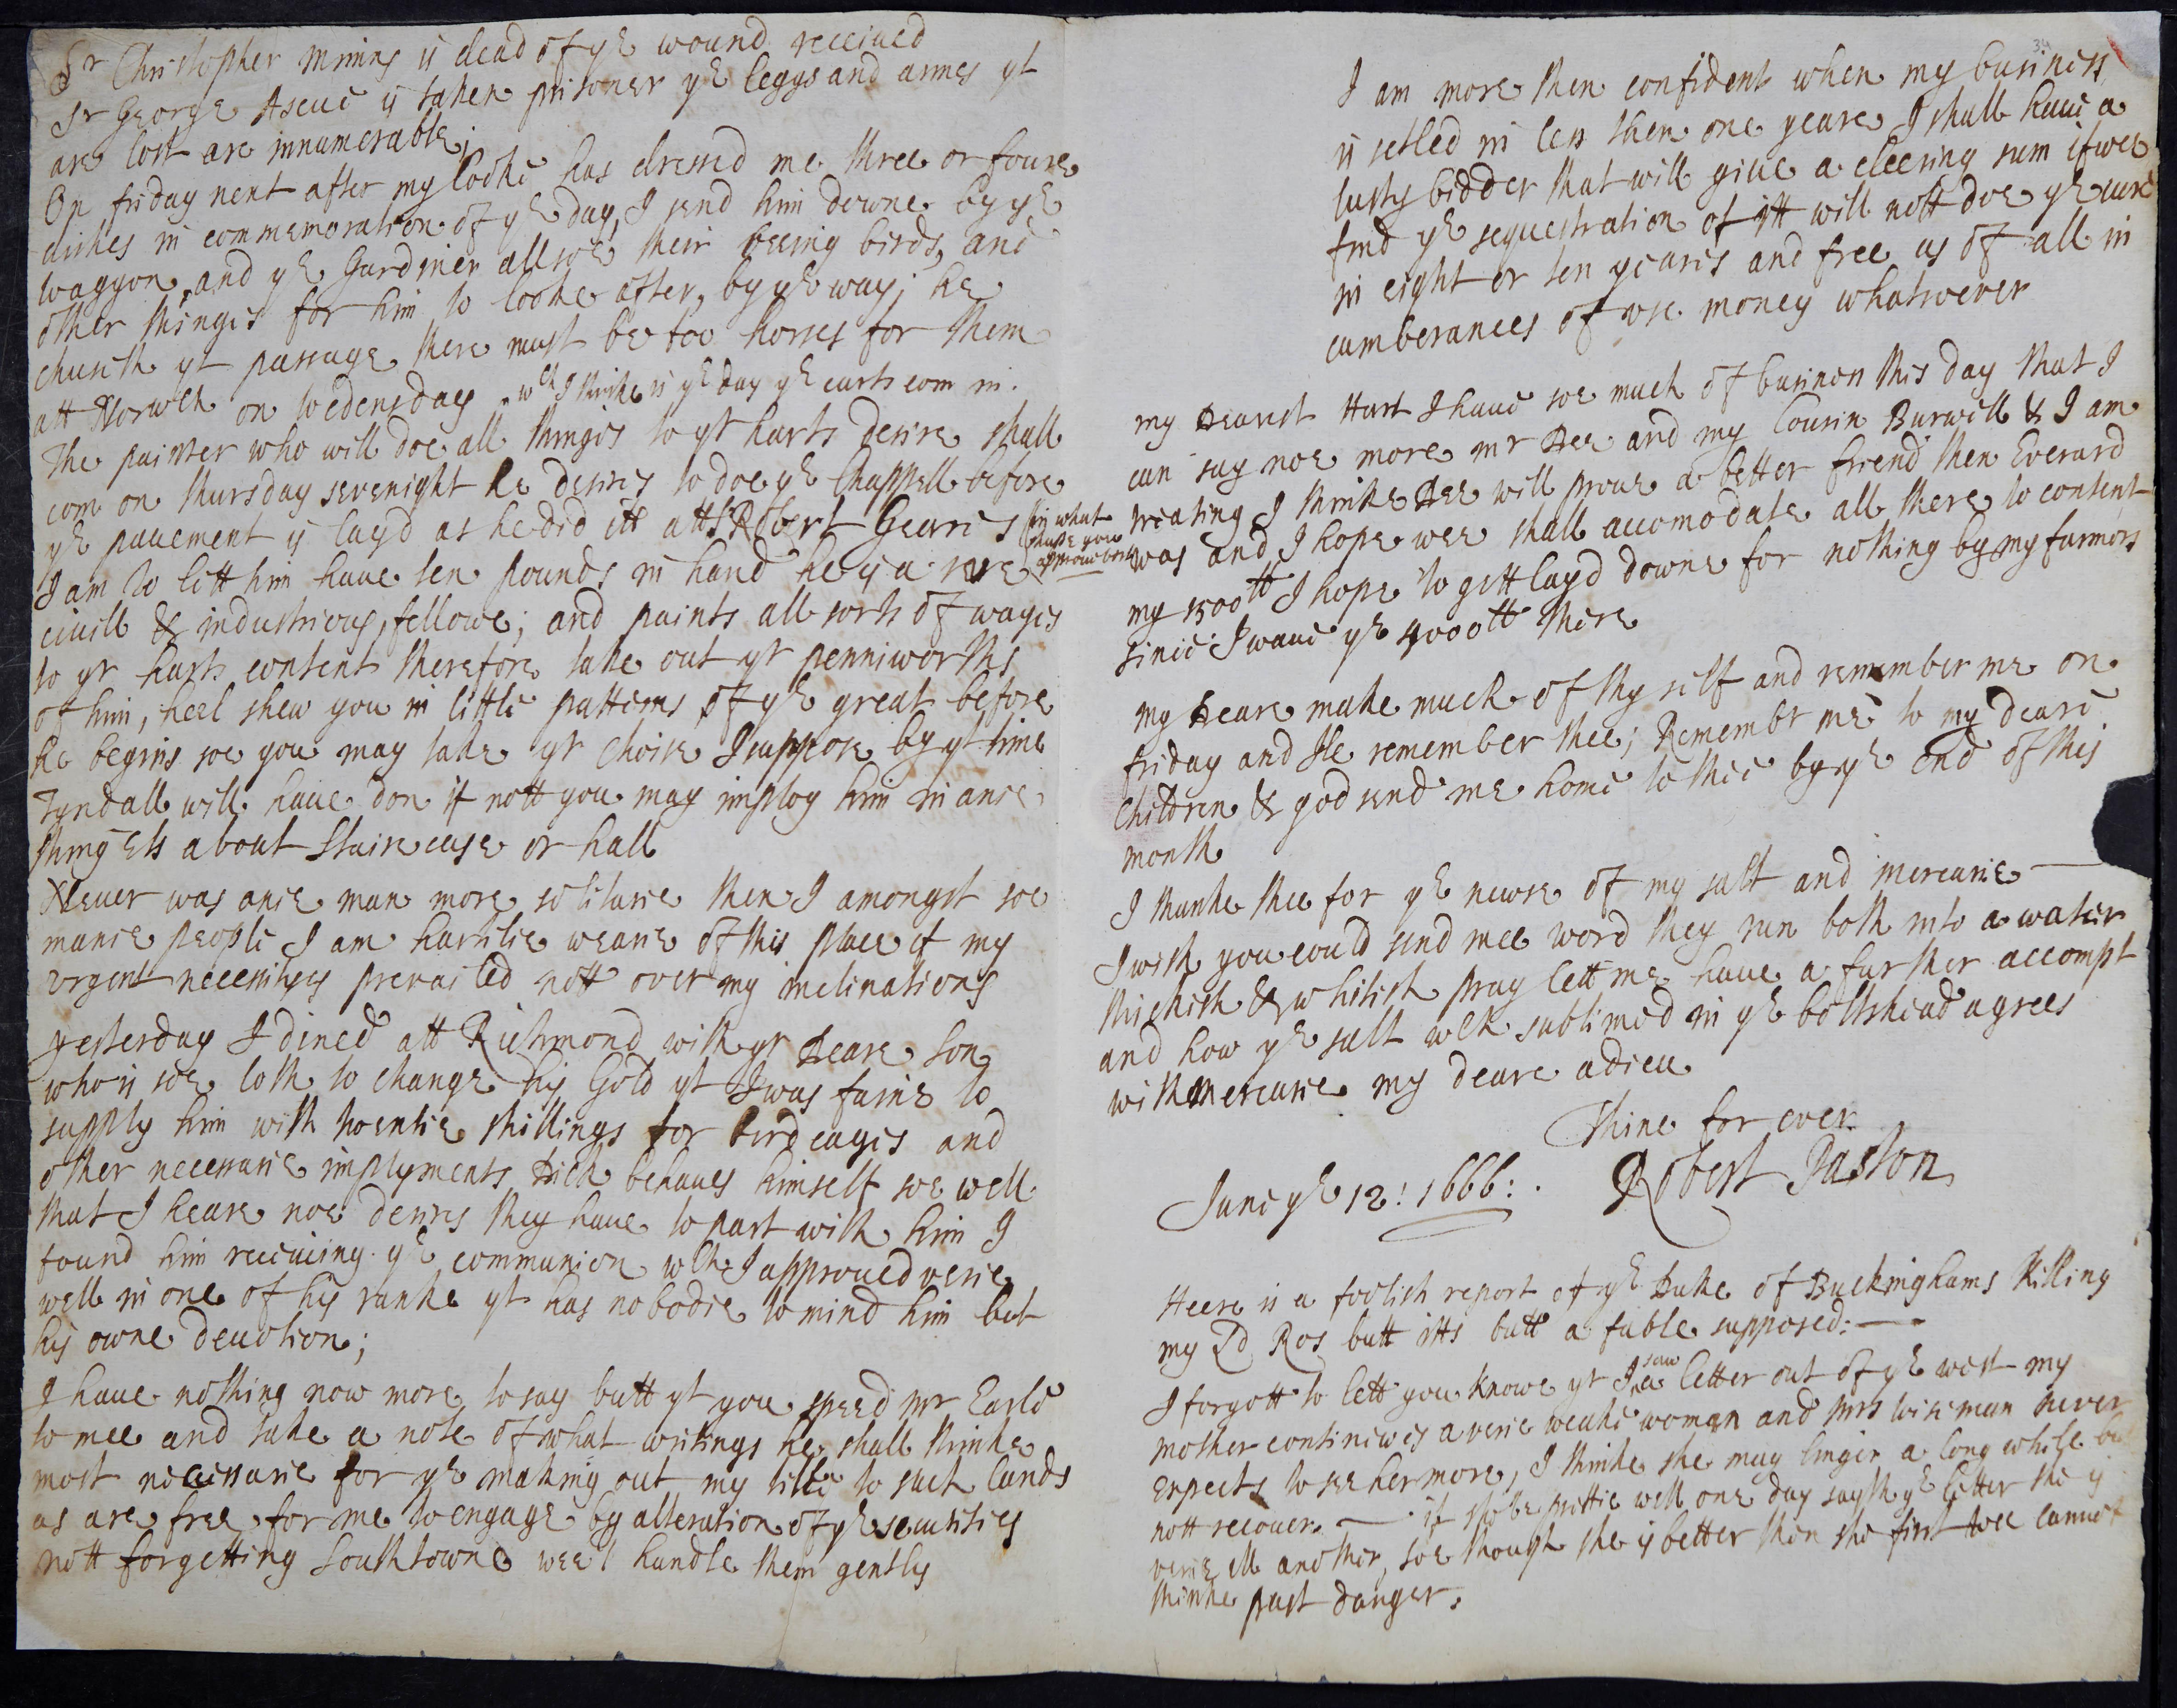 Sr Christopher Minns is dead of ye wound received
Sr George Ascue is taken prisoner ye leggs and armes yt
are lost are innumerable;
On friday next after my Cooke has dressed me three or foure
dishes in commemoration of ye day, I send him downe by ye
waggon, and ye Gardiner allsoe their beeing birds, and
other thinges for him to looke after, by ye way; he
church yt passage, there must be too horses for them
att Norwch on Wedensday, wch I thinke is ye day ye carts com in.
The painter who will doe all things to yr harts desire shall
com on thursday sevenight he desires to doe ye Chappell before
ye pavement is layd as he did itt att Sr Robert Gearies in what
I am to lett him have ten pounds in hand he is a rare
civill & industrious, fellowe; and paints all sorts of wayes
to yr harts content therefore take out yr penniworths
of him, heel shew you in little patterns of ye great before
he begins soe you may take yr choise I suppose by yt time
Tyndall will have don if nott you may imploy him in anie
thing els about Staircase or hall
Never was anie man more solitarie then I amongst soe
manie people I am hartilie wearie of this place if my
vrgent necessityes prevailed nott over my inclinations
yesterday I dined att Richmond with yr Deare son
who is soe loth to change his Gold yt I was faine to
supply him with twentie shillings for bird cages and
other necessarie implyments, Dick behaves himself soe well
that I heare noe desires they have to part with him I
found him receiving ye communion wch I approued verie
well in one of his ranke yt has nobodie to mind him but
his owne deuotion;
I have nothing now more to say butt yt you speed Mr Earle
to mee and take a note of what writings he shall thinke
most necessarie for ye making out my title to such lands
as are free for me to engage by alteration of ye securities
nott forgetting Southtowne wee'l handle them gently
I am more then confident when my business
is setled in less then one yeare I shall have a
lusty bidder that will give a cleering sum if wee
find ye sequestration of itt will nott doe ye cure
in eight or ten yeares and free us of all in
cumberances of use money whatsoever
my Dearest Hart I have soe much of business this day that I
can say noe more mr Dee and my Cousin Burwell & I am
treating I thinke Dee will proue a better friend then Everard
was and I hope wee shall accomodate all there to content
my 1500tt I hope to gett layd downe for nothing by my farmors
since I waue ye 4000tt there
my Deare make much of thy self and remember me on
friday and Ile remember thee; Remembr me to my deare
Children & god send me home to thee by ye end of this
month
I thanke thee for ye newse of my salt and mercurie
I wish you could send mee word they run both into a water
thickish & whitish pray lett me have a further accompt
and how ye salt wch sublimed in ye boltshead agrees
with Mercurie my deare adieu
Thine for ever
June ye 12: 1666: Robert Paston
Heere is a foolish report of ye Duke of Buckinghams killing
my Ld Ros butt itts butt a fable supposed:
I forgott to lett you knowe yt I saw a letter out of ye west my
mother continewes a verie weake woman and Mrs Wiseman never
expects to see her more, I thinke she may linger a long while but
nott recouer. if she be prettie well one day sayth ye letter she is
verie ill another, soe though she is better then she first wee cannot
thinke past danger.